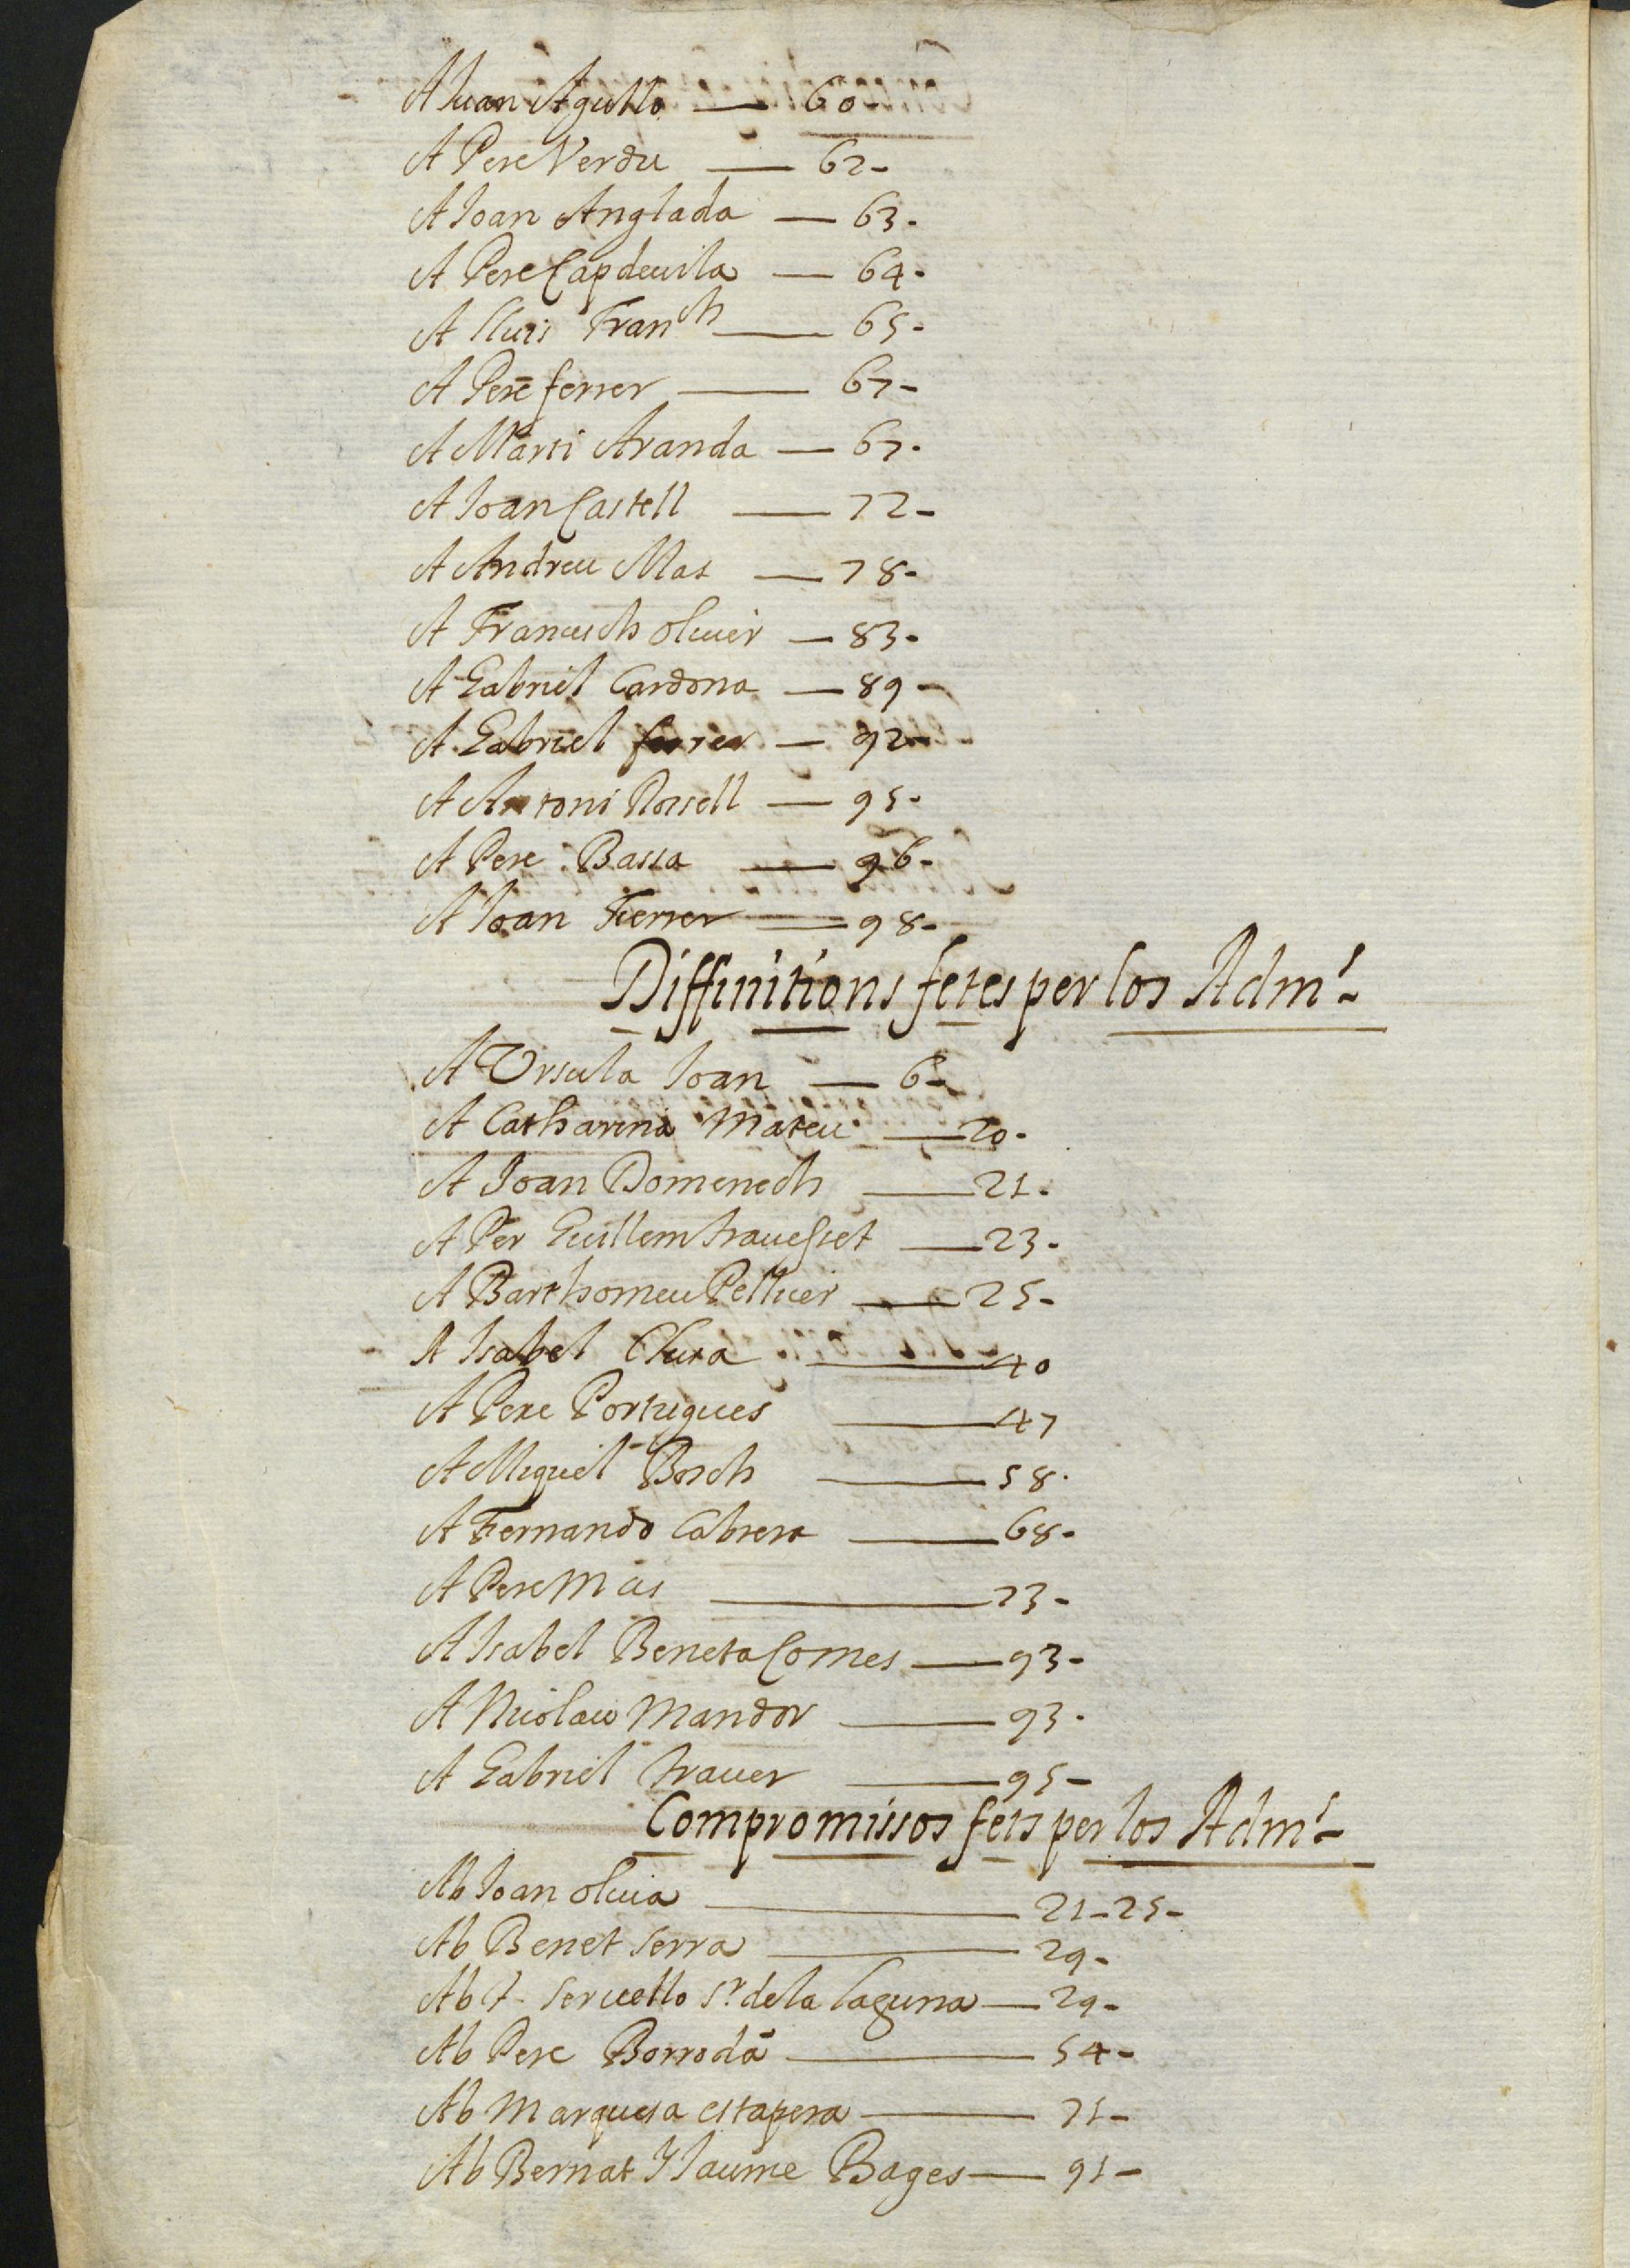 A Juan Agullo — 60-
A Pere Verdu — 62-
A Joan Anglada — 63-
A Pere Capdeuila — 64-
A Lluis Franch — 65-
A Pere ferrer — 67-
A Marti Aranda — 67-
A Joan Castell — 72-
A Andreu Mas — 78-
A Francesch oliuer — 83-
A Gabriel Cardona — 89-
A Gabriel ferrer — 92-
A Antoni Rossell — 95-
A Pere Bassa — 96-
A Joan Ferrer — 98-
Diffinitions fetes per los Adm.s
A Vrsula Joan — 6-
A Catharina Mateu — 20-
A Joan Domenech — 21-
A Per Guillem trauesset — 23-
A Barthomeu Pellicer — 25-
A Isabel Clura — 40
A Pere Portugues — 47
A Miquel Bosch — 58-
A Fernando Cabrera — 68-
A Pere Mas — 73-
A Isabel Beneta Comes — 93-
A Nicolau Mandor — 93-
A Gabriel trauer — 95-
Compromissos fets per los Adm.s
Ab Joan oliua — 21-25-
Ab Benet serra — 29-
Ab seruello s.r de la laguna — 29-
Ab Pere Borrodá — 54-
Ab Marquesa estapera — 71-
Ab Bernat y Jaume Bages — 91-